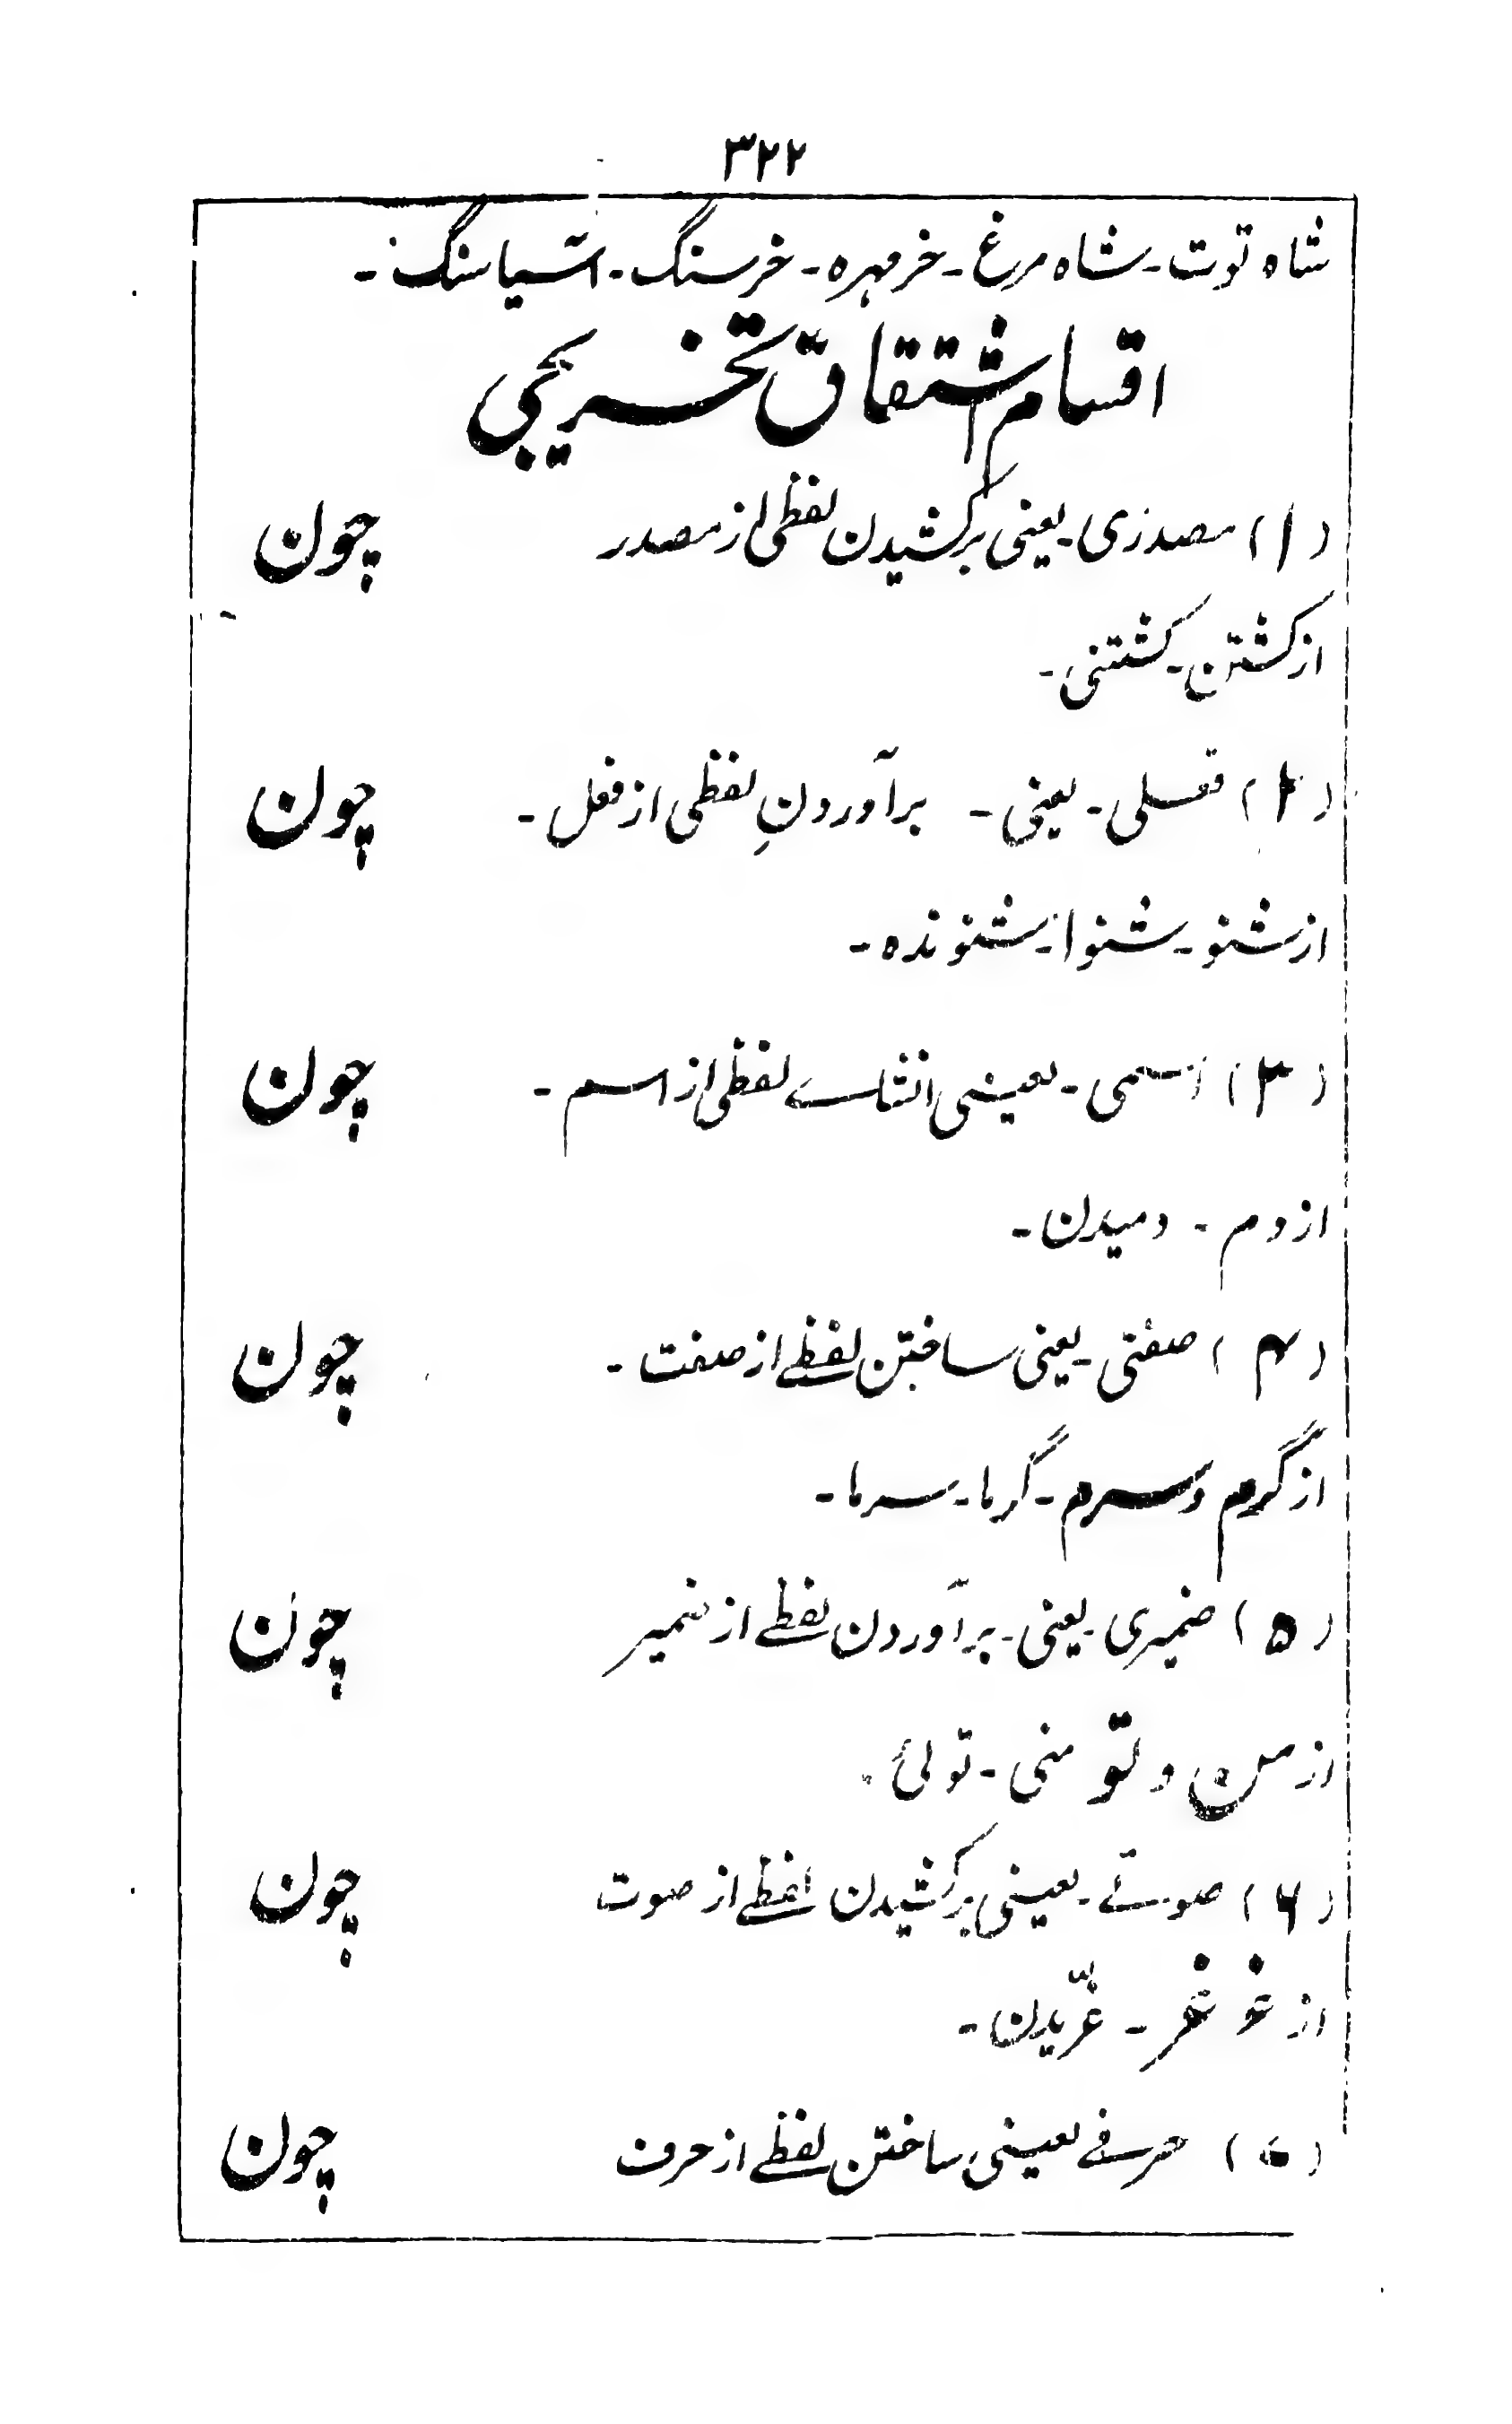 ۳۲۲
شاه توت ۔ شاه مرغ ۔ خر مهره ۔ خر سنگ ۔ آسیا سنگ ۔
اقسام اشتقاق تخریجی
(۱) مصدری ۔ یعنی برکشیدن لفظی از مصدر چون
از کشتن ۔ کشتنی ۔
(۲) فعلی ۔ یعنی ۔ برآوردنِ لفظی از فعل ۔ چون
از شنو ۔ شنوا ۔ شنونده ۔
(۳) اسمی ۔ یعنی انشاے لفظی از اسم ۔ چون
از دم ۔ دمیدن ۔
(۴) صفتی ۔ یعنی ساختن لفظے از صفت ۔ چون
از گرم و سرم ۔ گرما ۔ سرما ۔
(۵) ضمیری ۔ یعنی ۔ برآوردن لفظے از ضمیر چون
از من و تو منی ۔ توئی ۔
(۶) صوتے ۔ یعنی برکشیدن لفظے از صوت چون
از غو غر ۔ غرّیدن ۔
(۷) حرفے یعنی ساختن لفظے از حرف چون